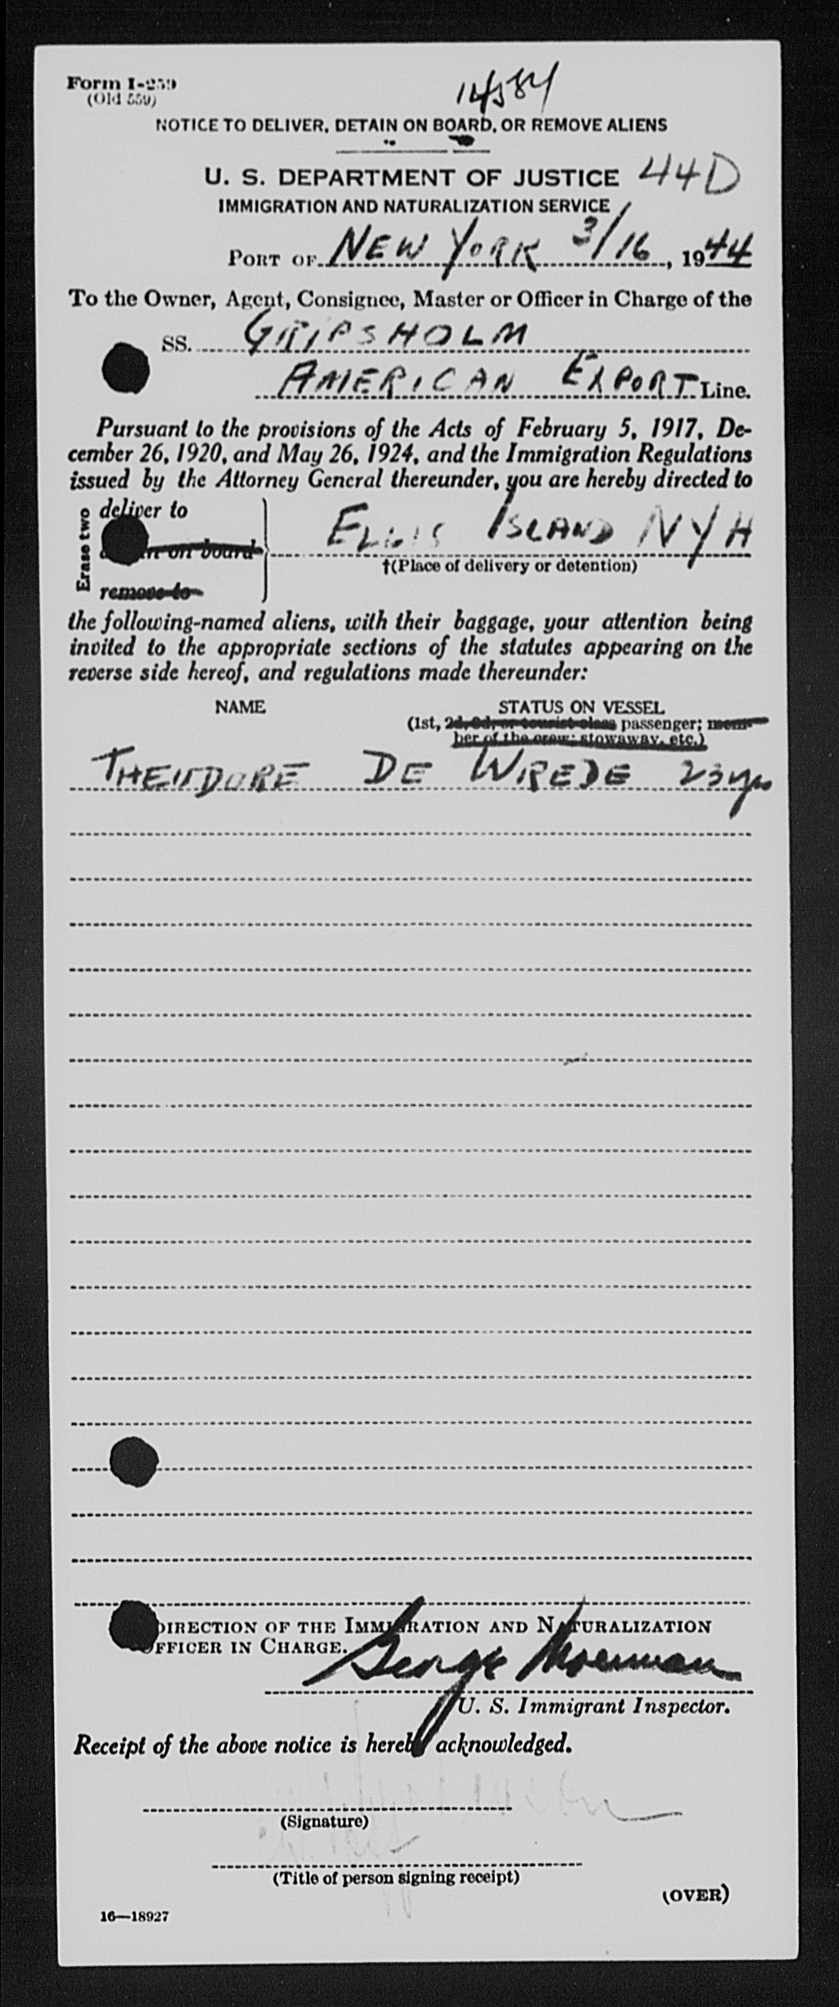 Form I-259
(Old 559)
NOTICE TO DELIVER, DETAIN ON BOARD, OR REMOVE ALIENS
U. S. DEPARTMENT OF JUSTICE 44D
IMMIGRATION AND NATURALIZATION SERVICE
PORT OF NEW YORK 3/16, 1944
To the Owner, Agent, Consignee, Master or Officer in Charge of the
SS. GRIPSHOLM
AMERICAN EXPORT Line.
Pursuant to the provisions of the Acts of February 5, 1917, De-
cember 26, 1920, and May 26, 1924, and the Immigration Regulations
issued by the Attorney General thereunder, you are hereby directed to
Erase two
deliver to
on board
remove to
ELLIS ISLAND NYH
†(Place of delivery or detention)
the following-named aliens, with their baggage, your attention being
invited to the appropriate sections of the statutes appearing on the
reverse side hereof, and regulations made thereunder:
NAME STATUS ON VESSEL
(1st, 2d, 3d, or tourist class passenger; mem-
ber of the crew; stowaway, etc.)
THEODORE DE WREDE 23 yrs
DIRECTION OF THE IMMIGRATION AND NATURALIZATION
OFFICER IN CHARGE.
George
U. S. Immigrant Inspector.
Receipt of the above notice is hereby acknowledged.
(Signature)
(Title of person signing receipt)
(OVER)
16—18927